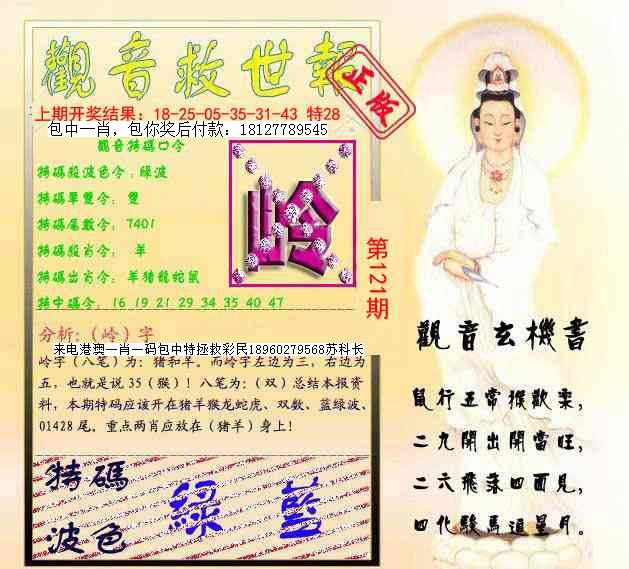 觀音救世報
正版
上期开奖结果：18-25-05-35-31-43 特28
包中一肖，包你奖后付款：18127789545
觀音特碼口令
特碼殺波色令：綠波
特碼單雙令：雙
特碼尾數令：7401
特碼殺肖令： 羊
特碼出肖令：羊豬龍蛇鼠
特中碼令：16 19 21 29 34 35 40 47
岭
第121期
分析：（岭）字
来电港澳一肖一码包中特拯救彩民18960279568苏科长
岭字（八笔）为：猪和羊。而岭字左边为三，右边为
五，也就是说 35（猴）！八笔为：（双）总结本报资
料，本期特码应该开在猪羊猴龙蛇虎、双数、蓝绿波、
01428 尾。重点两肖应放在（猪羊）身上！
特碼
波色
綠 藍
觀音玄機書
鼠行五常猴歡樂，
二九開出開當旺，
二六飛落四面見，
四化駿馬逗星月。